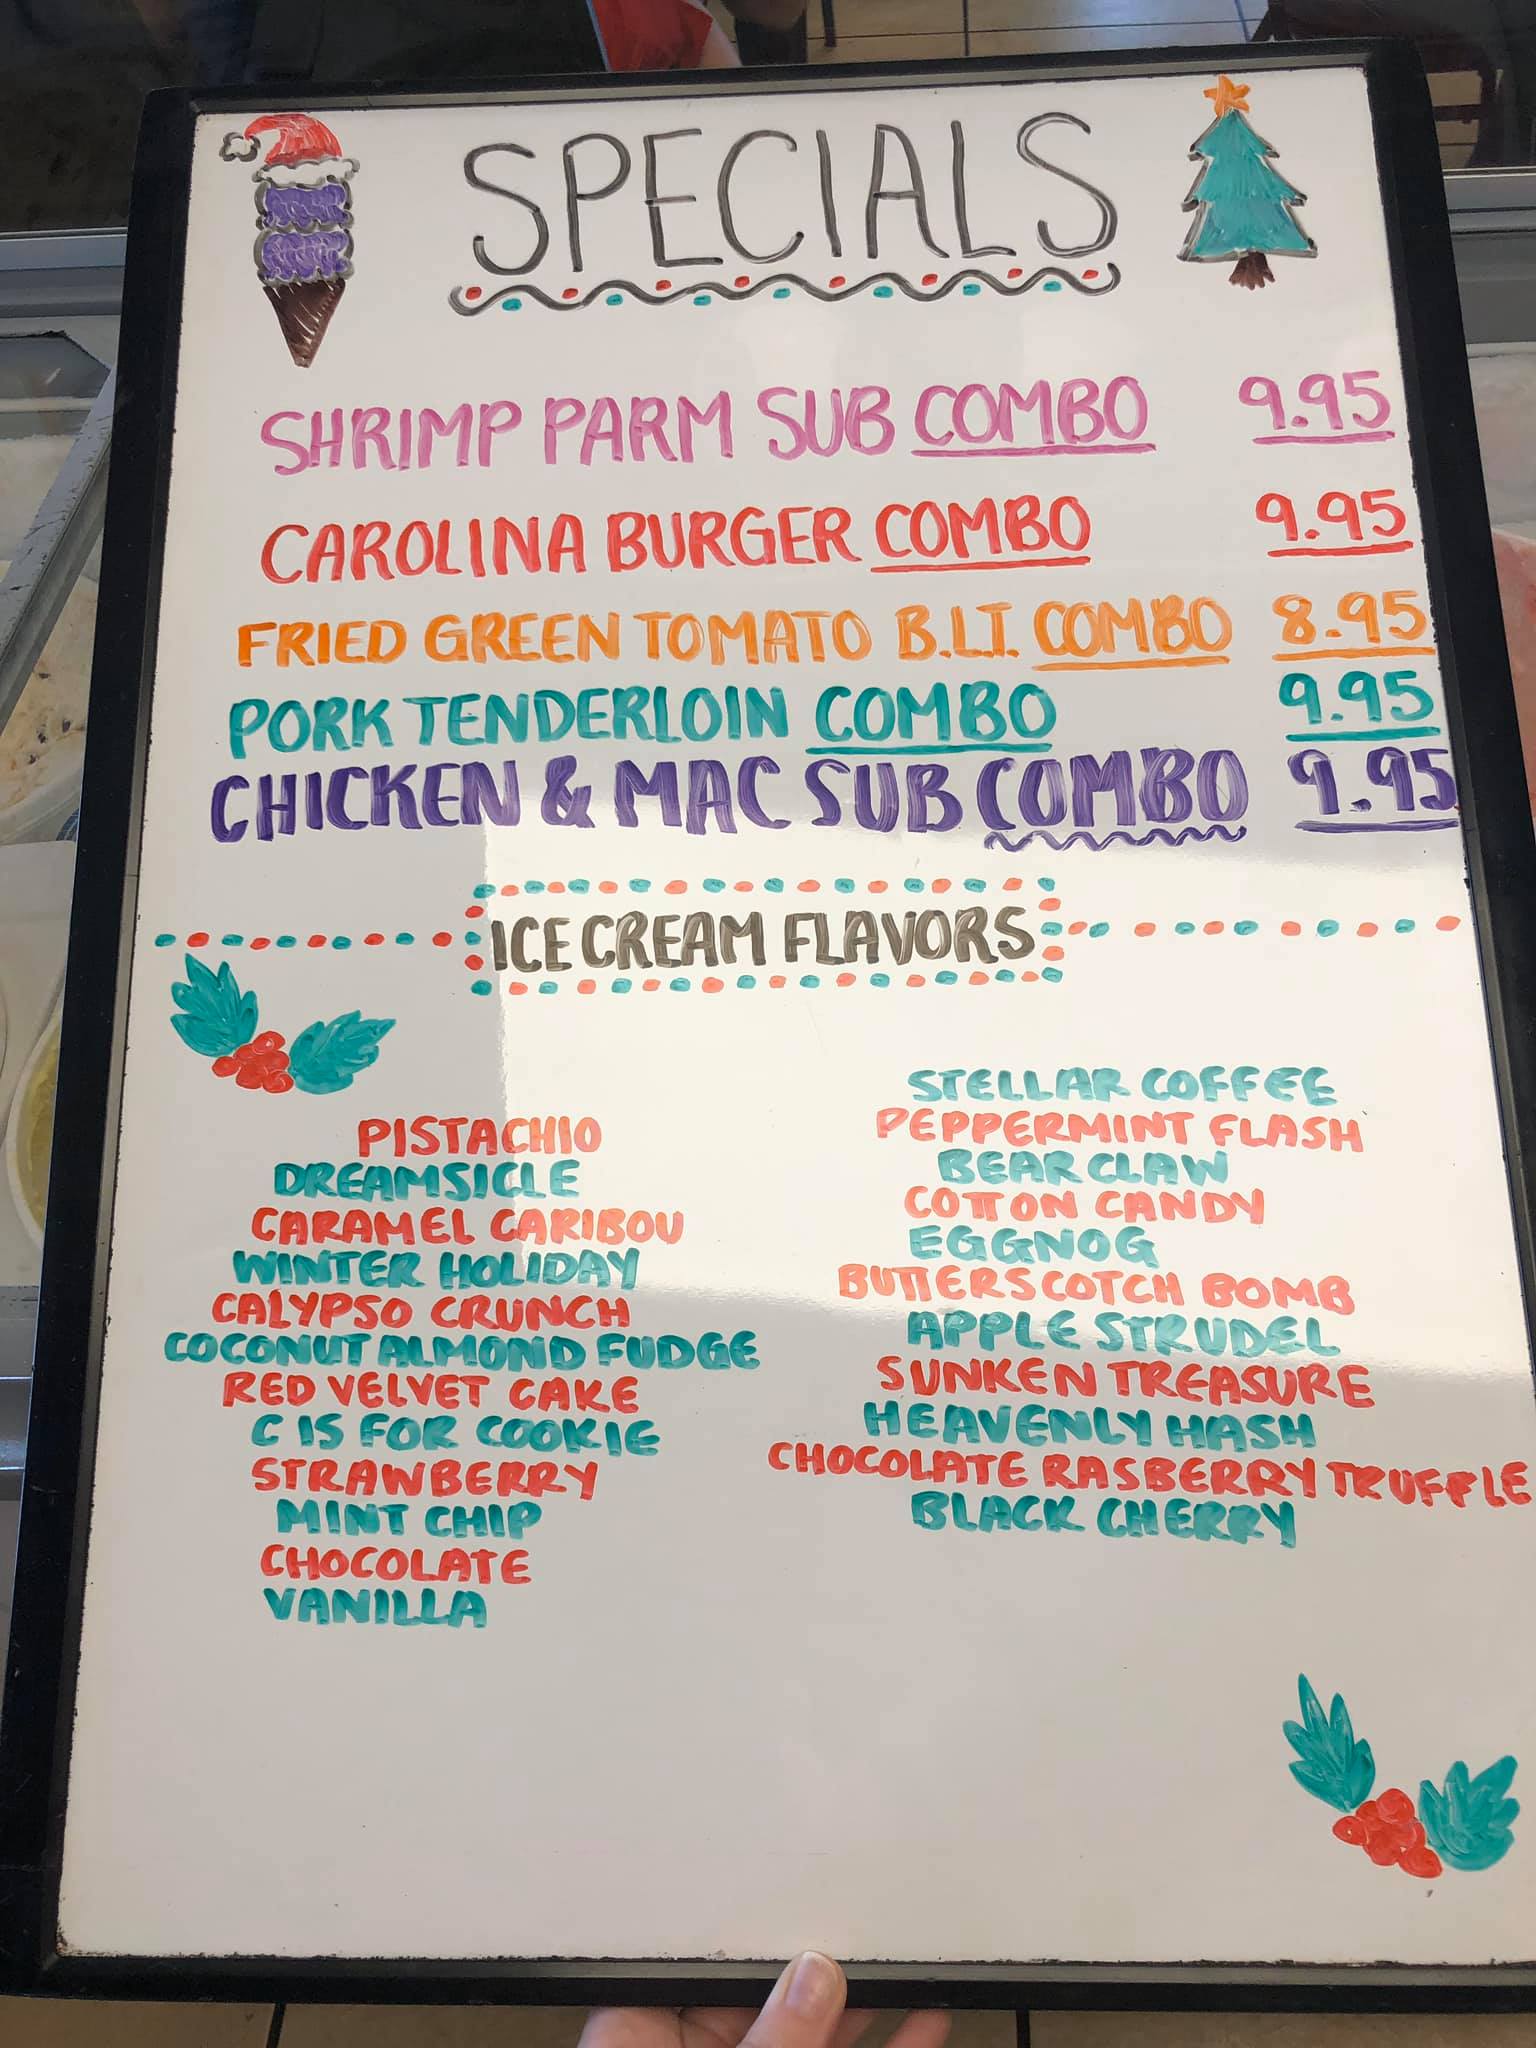 SPECIALS
SHRIMP PARM SUB COMBO 9.95
CAROLINA BURGER COMBO 9.95
FRIED GREEN TOMATO B.L.T. COMBO 8.95
PORK TENDERLOIN COMBO 9.95
CHICKEN & MAC SUB COMBO 9.95
ICE CREAM FLAVORS
PISTACHIO
DREAMSICLE
CARAMEL CARIBOU
WINTER HOLIDAY
CALYPSO CRUNCH
COCONUT ALMOND FUDGE
RED VELVET CAKE
C IS FOR COOKIE
STRAWBERRY
MINT CHIP
CHOCOLATE
VANILLA
STELLAR COFFEE
PEPPERMINT FLASH
BEAR CLAW
COTTON CANDY
EGGNOG
BUTTERSCOTCH BOMB
APPLE STRUDEL
SUNKEN TREASURE
HEAVENLY HASH
CHOCOLATE RASBERRY TRUFFLE
BLACK CHERRY